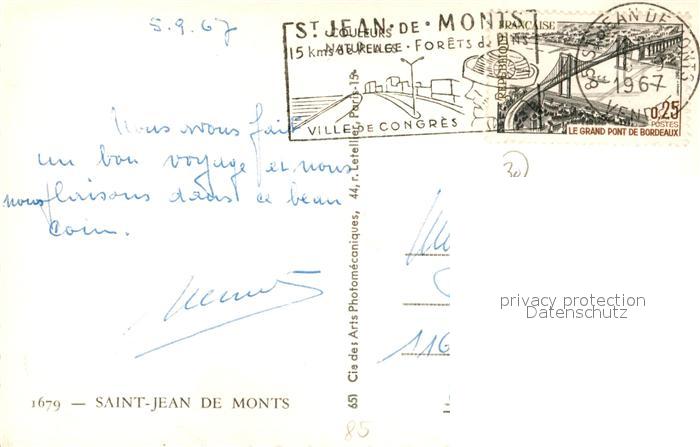 5.9.67
ST JEAN · DE · MONTS
COULEURS
NATURELLES
15 kms de PLAGE · FORÊTS de PINS
VILLE DE CONGRÈS
RÉPUBLIQUE FRANÇAISE
ST JEAN DE MONTS
1967
VENDÉE
0,25
POSTES
LE GRAND PONT DE BORDEAUX
Nous avons fait
un bon voyage et nous
nous plaisons dans ce beau
coin.
30
116
privacy protection
Datenschutz
651 Cie des Arts Photomécaniques, 44, r. Letellier, Paris-15e
1679 — SAINT-JEAN DE MONTS
85